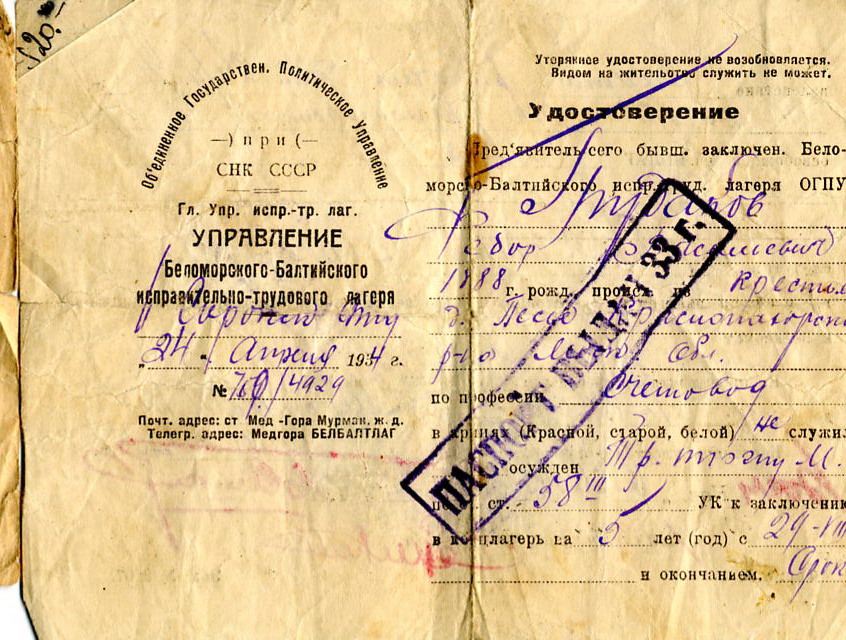 520.
Об'единенное Государствен. Политическое Управление
—) при (—
СНК СССР
Гл. Упр. испр.-тр. лаг.
УПРАВЛЕНИЕ
Беломорского-Балтийского
исправительно-трудового лагеря
„24" Апреля 1934 г.
№ /4929
Почт. адрес: ст Мед-Гора Мурман. ж. д.
Телегр. адрес: Медгора БЕЛБАЛТЛАГ
Уторянное удостоверение не возобновляется.
Видом на жительство служить не может.
Удостоверение
Пред'явитель сего бывш. заключен. Бело-
морско-Балтийского испр.-труд. лагеря ОГПУ
Грибабов
Васильевич
1888 г. рожд. происх. из крестьян
д.
р-на обл.
по профессии Счетовод
в армиях (Красной, старой, белой) не служил
осужден Тр. М.
по ст. 58 III УК к заключению
в концлагерь на 5 лет (год) с 29-VIII
и окончанием. Срок
ПАСПОРТ ВЫДАН 33 г.